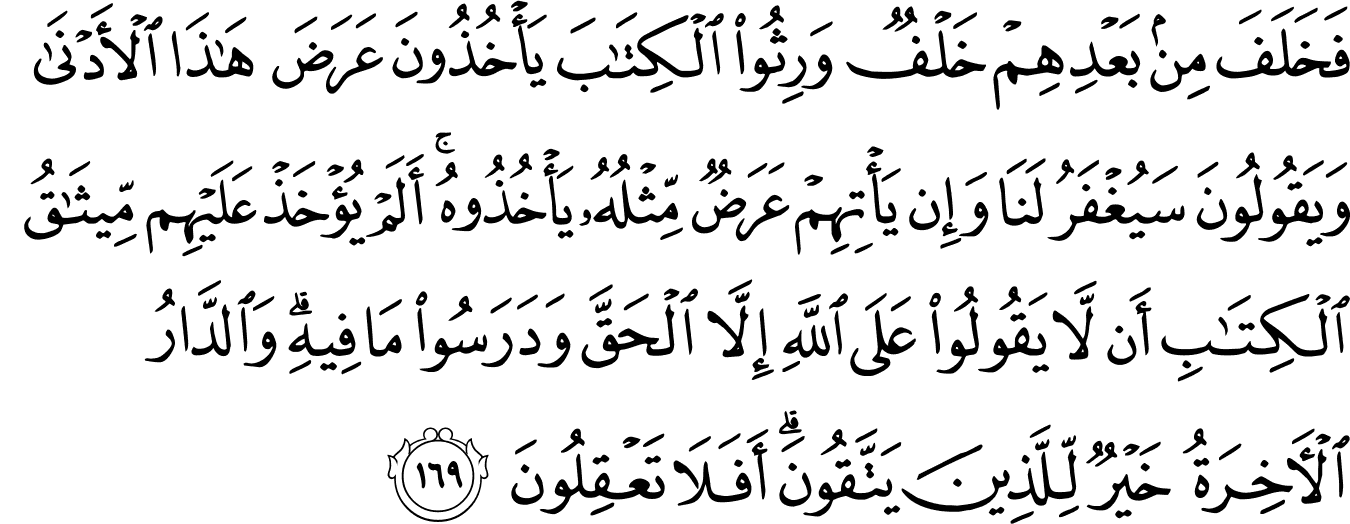 فَخَلَفَ مِنۢ بَعْدِهِمْ خَلْفٌ وَرِثُوا۟ ٱلْكِتَـٰبَ يَأْخُذُونَ عَرَضَ هَـٰذَا ٱلْأَدْنَىٰ
وَيَقُولُونَ سَيُغْفَرُ لَنَا وَإِن يَأْتِهِمْ عَرَضٌ مِّثْلُهُۥ يَأْخُذُوهُ ۚ أَلَمْ يُؤْخَذْ عَلَيْهِم مِّيثَـٰقُ
ٱلْكِتَـٰبِ أَن لَّا يَقُولُوا۟ عَلَى ٱللَّهِ إِلَّا ٱلْحَقَّ وَدَرَسُوا۟ مَا فِيهِ ۗ وَٱلدَّارُ
ٱلْـَٔاخِرَةُ خَيْرٌ لِّلَّذِينَ يَتَّقُونَ ۗ أَفَلَا تَعْقِلُونَ ١٦٩